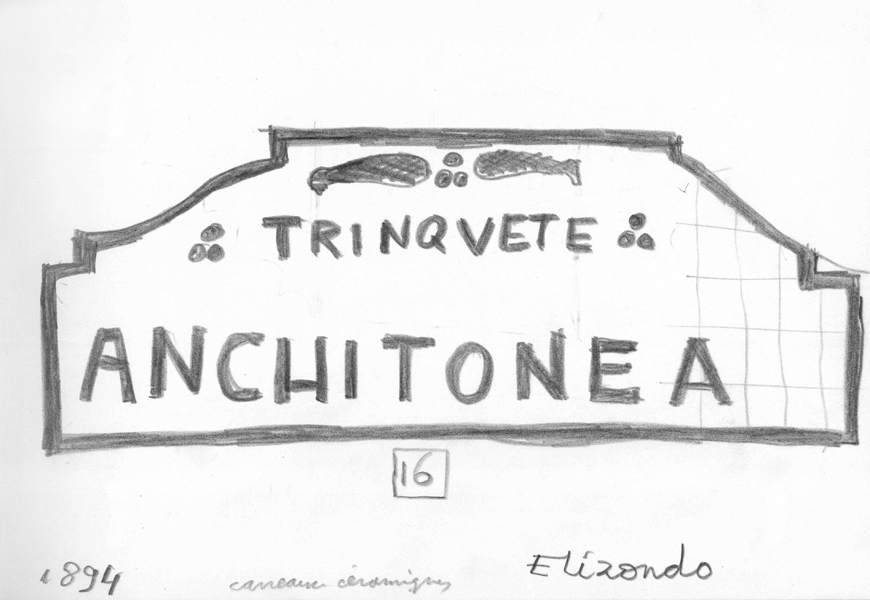 TRINQVETE
ANCHITONEA
16
1894 carreaux céramiques Elizondo